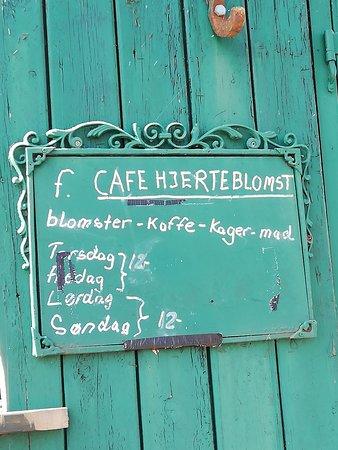 f. CAFE HJERTEBLOMST
blomster-Koffe-Kager-mad
Torsdag
Fredag } 12-
Lørdag
Søndag } 12-